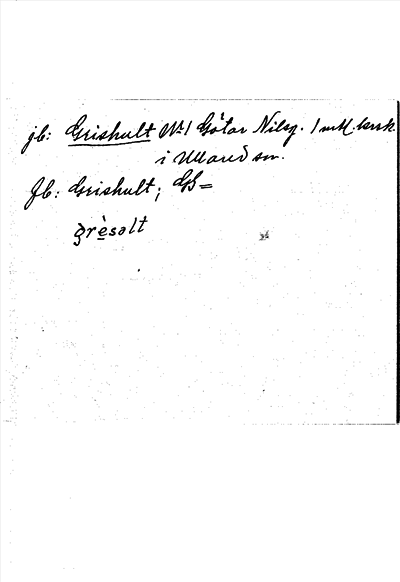 jb: Grishult No 1 Götar Nils. 1 mtl. krsk.
i Ullared sn.
Jb: Grishult; GS=
grèsalt